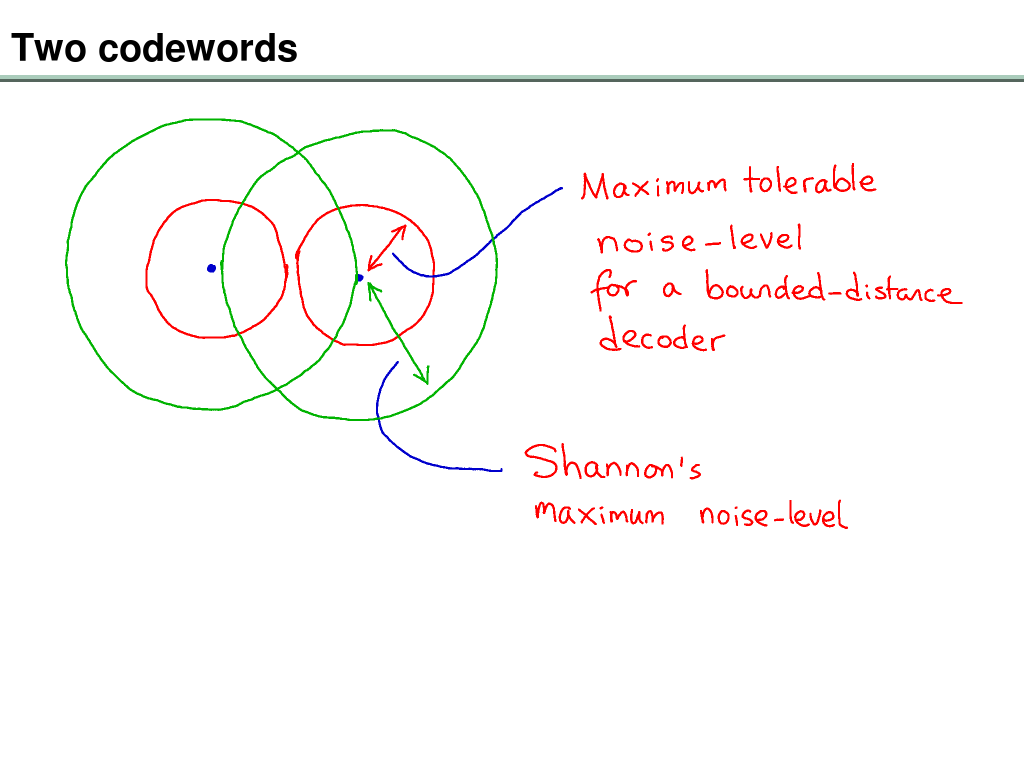 Two codewords
Maximum tolerable
noise-level
for a bounded-distance
decoder
Shannon's
maximum noise-level